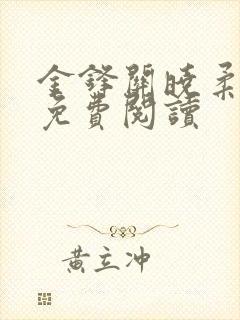 金鋒關曉柔
免費閱讀
黃立冲